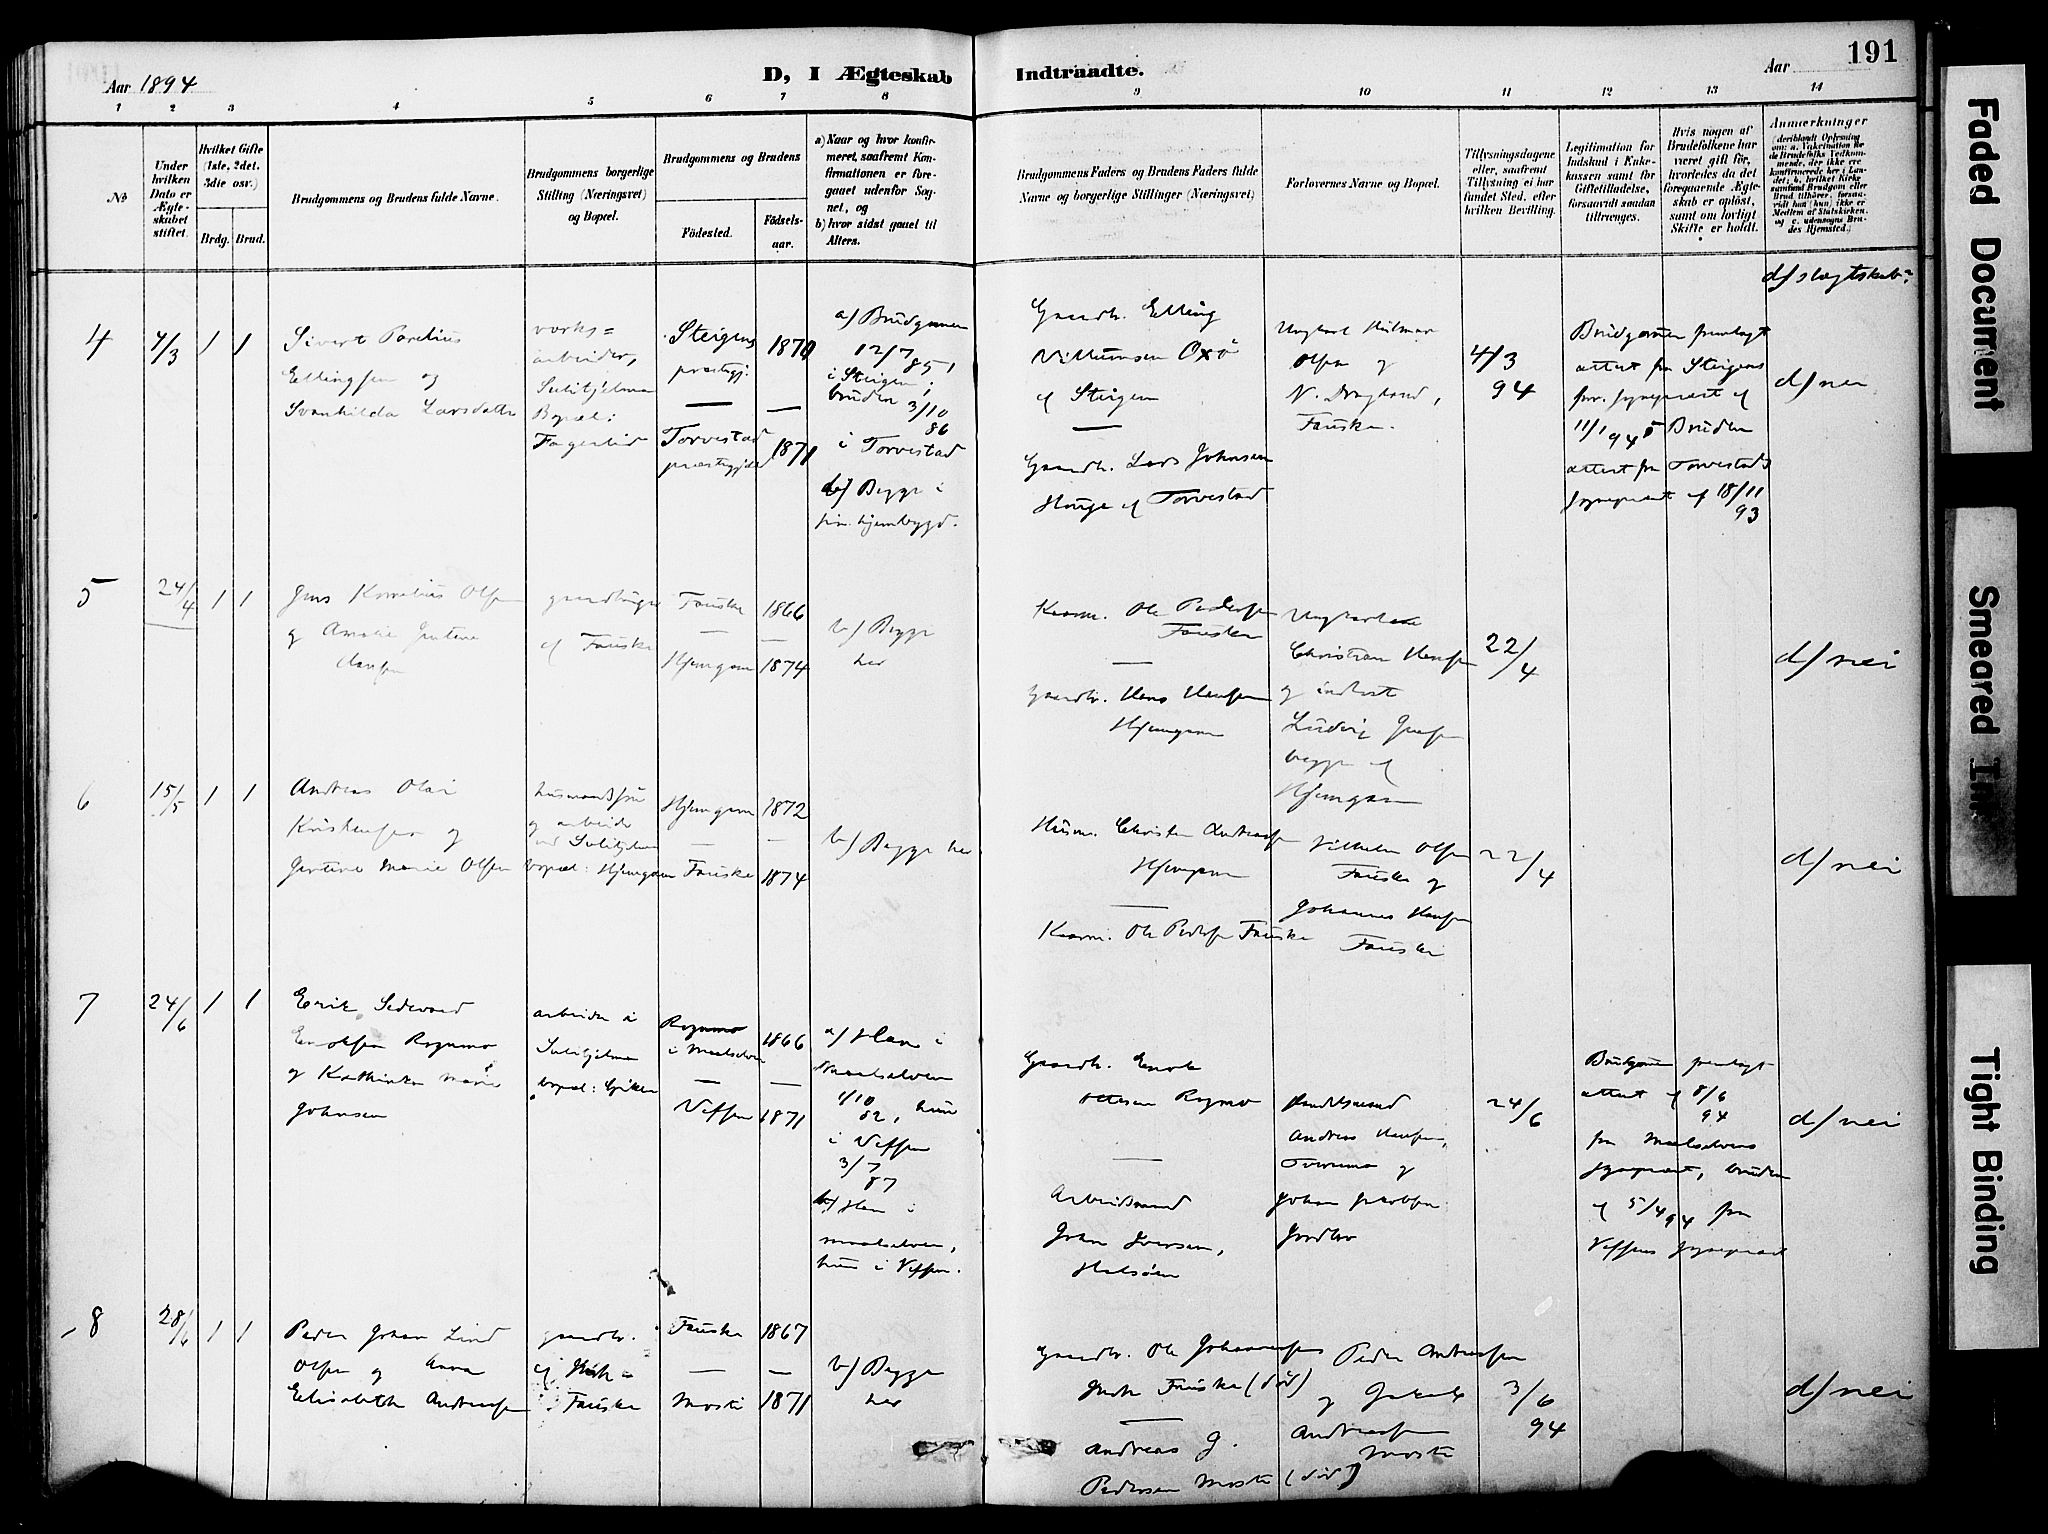 Aar 1894
D, I Ægteskab Indtraadte.
Aar
191
1 2 3 4 5 6 7 8 9 10 11 12 13 14
No
Under hvilken Dato er Ægteskabet stiftet.
Hvilket Gifte (1ste, 2det, 3die osv.)
Brdg. Brud.
Brudgommens og Brudens fulde Navne.
Brudgommens borgerlige Stilling (Næringsvei) og Bopæl.
Brudgommens og Brudens
Fødested.
Fødselsaar.
a) Naar og hvor konfirmeret, saafremt Konfirmationen er foregaaet udenfor Sognet, og
b) hvor sidst gaaet til Alters.
Brudgommens Faders og Brudens Faders fulde Navne og borgerlige Stillinger (Næringsvei)
Forlovernes Navne og Bopæl.
Tillysningsdagene eller, saafremt Tillysning ei har fundet Sted, efter hvilken Bevilling.
Legitimation for Indskud i Enkekassen samt for Giftetilladelse, forsaavidt saadan tiltrænges.
Hvis nogen af Brudefolkene har været gift før, hvorledes da det foregaaende Ægteskab er opløst, samt om lovligt Skifte er holdt.
Anmærkninger
(deriblandt Oplysning om: a. Vakcination for de Brudefolks Vedkommende, der ikke ere konfirmerede her i Landet; b. hvilket Kirkesamfund Brudgom eller Brud tilhører, forsaavidt han (hun) ikke er Medlem af Statskirken, og c. udensogns Brudes Hjemsted.)
d/ slægtskab?
4
4/3
1 1
Sivert Parelius
Ellingsen og
Svanhilda Larsdatter
verks=
arbeider,
Sulitjelma
Bopæl:
Fagerlid
Steigens
præstegj.
1870
Torvestad
præstegjeld
1871
a/ Brudgommen
12/7 85
i Steigen;
bruden 3/10
86
i Torvestad
b/ Begge i
sin hjembygd.
Gaardb. Elling
Villumsen Oxö
af Steigen
Gaardb. Lars Johnsen
Hauge af Torvestad
Ungkarl Hilmar
Olsen og
N. Dragland,
Fauske.
4/3
94
Brudgommen fremlagt
attest fra Steigens
11/1 94 & Bruden
attest fra Torvestads
sogneprest af 18/11
93
d/ nei
5
24/4
1 1
Jens Kornelius Olsen
og Amalie Jentine
Hansen
gaardbruger
af Fauske
Fauske 1866
Hjemgam 1874
b/ Begge
her
Kaarm. Ole Pedersen
Fauske
Gaardbr. Hans Hansen
Hjemgam
Ungkarlene
Christian Hansen
og
Ludvig Jensen
begge af
Hjemgam
22/4
d/ nei
6
15/5
1 1
Andreas Olai
Kristensen og
Jentine Marie Olsen
husmandssøn
og arbeider
ved Sulitjelma
bopæl: Hjemgam
Hjemgam 1872
Fauske 1874
b/ Begge her
Husm. Christen Andreassen
Hjemgam
Kaarm. Ole Pedersen Fauske
Vilhelm Olsen
Fauske og
Johannes Hansen
Fauske
22/4
d/ nei
7
24/6
1 1
Erik Sedevard
Enoksen Rognmo
og Kathinka Marie
Johnsen
arbeider i
Sulitjelma
bopæl: Giken
Rognmo
i Maalselven
1866
Vefsen 1871
a/ Han i
Maalselven
1/10
82, hun
i Vefsen
3/7
87
b/ Han i
Maalselven,
hun i Vefsen.
Gaardb. Enok
Ottesen Rognmo
Arbeidsmand
Johan Iversen,
Halsøen
Handelsmand
Andreas Hansen,
Tveraamo og
Johan Jakobsen
Jordbro
24/6
Brudgommen fremlagt
attest af 8/6
94
fra Maalselvens
sogneprest, bruden
af 5/4 94 fra
Vefsens sogneprest
d/ nei
8
28/6
1 1
Peder Johan Lind
Olsen og Anna
Elisabeth Andreassen
gaardbr.
Fauske
Fauske 1867
Moste 1871
b/ Begge
her
Gaardbr. Ole Johannessen
Fauske (død)
Andreas J.
Pedersen Moste (død)
Peder Andreassen
og Jakob
Andreassen
Moste
3/6
94
d/ nei
Faded Document
Smeared Ink
Tight Binding